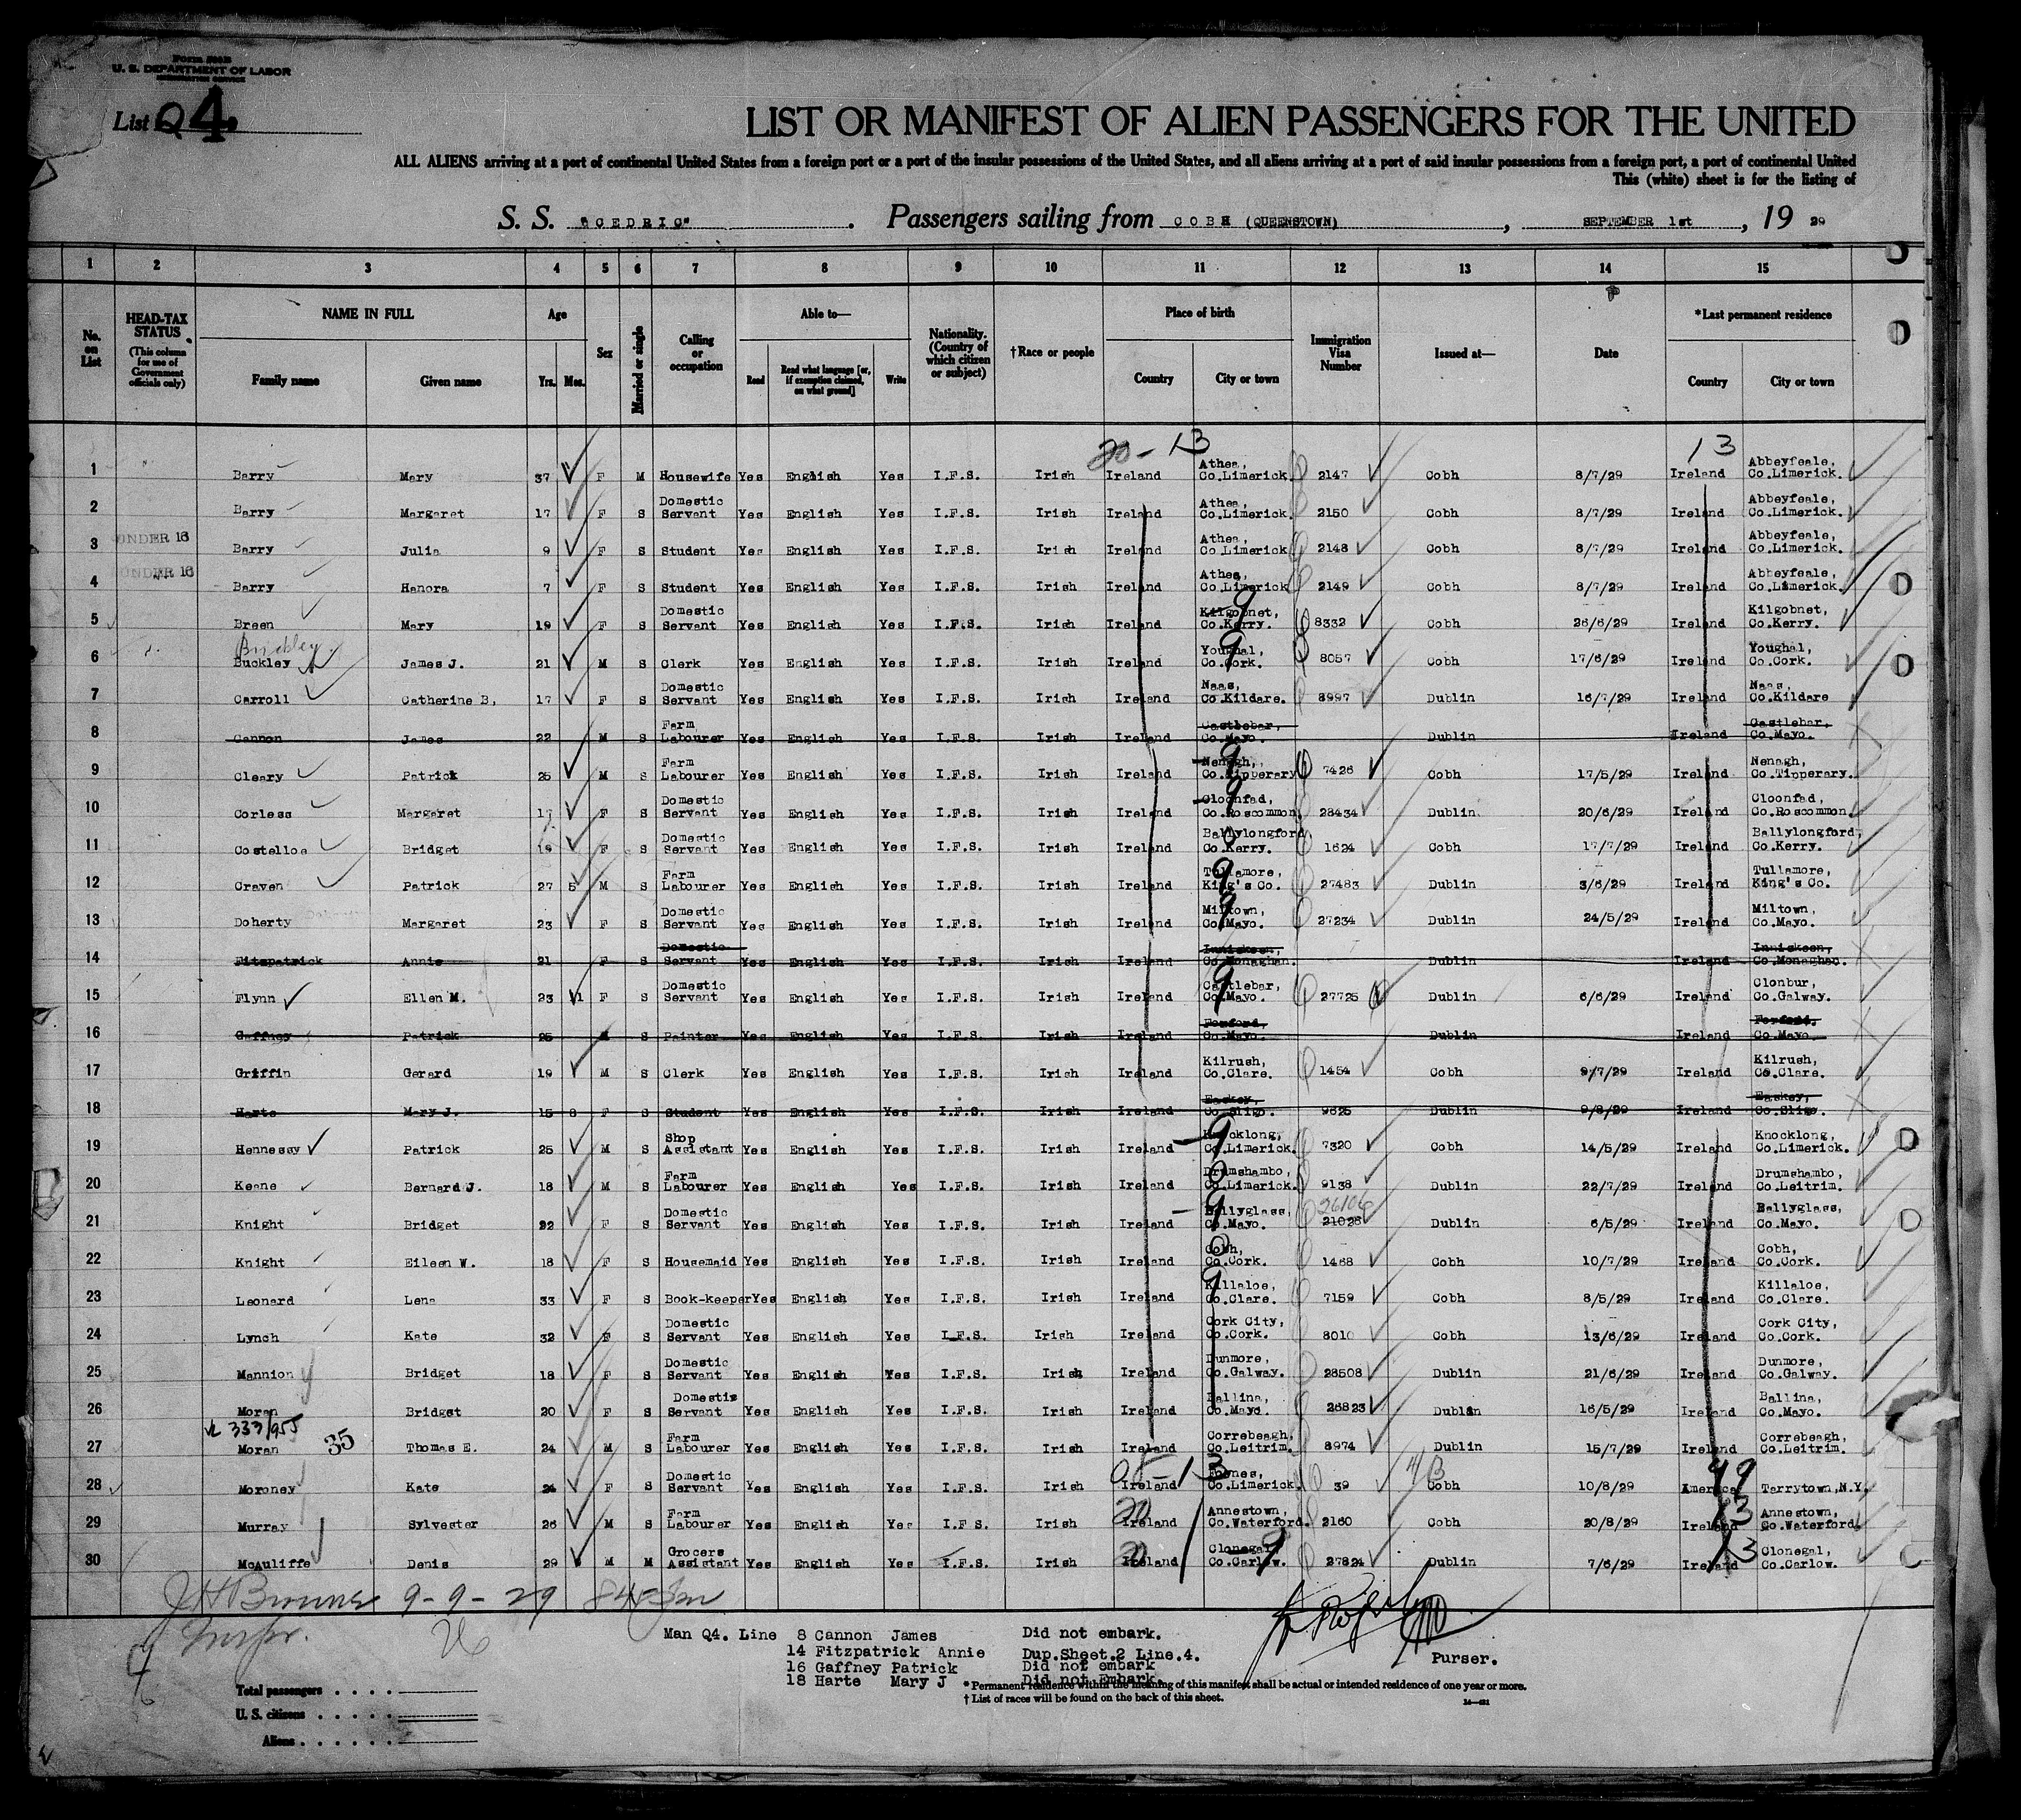 U. S. DEPARTMENT OF LABOR
List Q4
LIST OR MANIFEST OF ALIEN PASSENGERS FOR THE UNITED
ALL ALIENS arriving at a port of continental United States from a foreign port or a port of the insular possessions of the United States, and all aliens arriving at a port of said insular possessions from a foreign port, a port of continental United
This (white) sheet is for the listing of
S. S. "CEDRIC". Passengers sailing from COBH (QUEENSTOWN), SEPTEMBER 1st, 19 29
1 2 3 4 5 6 7 8 9 10 11 12 13 14 15
No. on List HEAD-TAX STATUS (This column for use of Government officials only) NAME IN FULL Family name Given name Age Yrs. Mos. Sex Married or single Calling or occupation Able to— Read Read what language [or, if exemption claimed, on what ground] Write Nationality. (Country of which citizen or subject) †Race or people Place of birth Country City or town Immigration Visa Number Issued at— Date *Last permanent residence Country City or town
20-13 13
1 Barry Mary 37 F M Housewife Yes English Yes I.F.S. Irish Ireland Athea, Co.Limerick. 2147 Cobh 8/7/29 Ireland Abbeyfeale, Co.Limerick.
2 Barry Margaret 17 F S Domestic Servant Yes English Yes I.F.S. Irish Ireland Athea, Co.Limerick. 2150 Cobh 8/7/29 Ireland Abbeyfeale, Co.Limerick.
3 UNDER 16 Barry Julia 9 F S Student Yes English Yes I.F.S. Irish Ireland Athea, Co.Limerick 2148 Cobh 8/7/29 Ireland Abbeyfeale, Co.Limerick.
4 UNDER 16 Barry Hanora 7 F S Student Yes English Yes I.F.S. Irish Ireland Athea, Co.Limerick 2149 Cobh 8/7/29 Ireland Abbeyfeale, Co.Limerick.
5 Breen Mary 19 F S Domestic Servant Yes English Yes I.F.S. Irish Ireland Kilgobnet, Co.Kerry. 8332 Cobh 26/6/29 Ireland Kilgobnet, Co.Kerry.
Buckley
6 Buckley James J. 21 M S Clerk Yes English Yes I.F.S. Irish Ireland Youghal, Co.Cork. 8057 Cobh 17/6/29 Ireland Youghal, Co.Cork.
7 Carroll Catherine B. 17 F S Domestic Servant Yes English Yes I.F.S. Irish Ireland Naas, Co.Kildare. 8997 Dublin 16/7/29 Ireland Naas, Co.Kildare
8 Cannon James 22 M S Farm Labourer Yes English Yes I.F.S. Irish Ireland Castlebar, Co.Mayo. Dublin Ireland Castlebar, Co.Mayo.
9 Cleary Patrick 25 M S Farm Labourer Yes English Yes I.F.S. Irish Ireland Nenagh, Co.Tipperary 7426 Cobh 17/5/29 Ireland Nenagh, Co.Tipperary.
10 Corless Margaret 17 F S Domestic Servant Yes English Yes I.F.S. Irish Ireland Cloonfad, Co.Roscommon. 28434 Dublin 20/6/29 Ireland Cloonfad, Co.Roscommon.
11 Costelloe Bridget 19 F S Domestic Servant Yes English Yes I.F.S. Irish Ireland Ballylongford, Co.Kerry. 1624 Cobh 17/7/29 Ireland Ballylongford, Co.Kerry.
12 Craven Patrick 27 5 M S Farm Labourer Yes English Yes I.F.S. Irish Ireland Tullamore, King's Co. 27483 Dublin 3/6/29 Ireland Tullamore, King's Co.
13 Doherty Margaret 23 F S Domestic Servant Yes English Yes I.F.S. Irish Ireland Miltown, Co.Mayo. 27234 Dublin 24/5/29 Ireland Miltown, Co.Mayo.
14 Fitzpatrick Annie 21 F S Domestic Servant Yes English Yes I.F.S. Irish Ireland Inniskeen, Co.Monaghan. Dublin Ireland Inniskeen, Co.Monaghan.
15 Flynn Ellen M. 23 11 F S Domestic Servant Yes English Yes I.F.S. Irish Ireland Castlebar, Co.Mayo. 27725 Dublin 6/6/29 Ireland Clonbur, Co.Galway.
16 Gaffney Patrick 25 M S Painter Yes English Yes I.F.S. Irish Ireland Foxford, Co.Mayo. Dublin Ireland Foxford, Co.Mayo.
17 Griffin Gerard 19 M S Clerk Yes English Yes I.F.S. Irish Ireland Kilrush, Co.Clare. 1454 Cobh 9/7/29 Ireland Kilrush, Co.Clare.
18 Harte Mary J. 15 8 F S Student Yes English Yes I.F.S. Irish Ireland Easkey, Co.Sligo. 9625 Dublin 9/8/29 Ireland Easkey, Co.Sligo.
19 Hennessy Patrick 25 M S Shop Assistant Yes English Yes I.F.S. Irish Ireland Knocklong, Co.Limerick. 7320 Cobh 14/5/29 Ireland Knocklong, Co.Limerick.
20 Keane Bernard J. 18 M S Farm Labourer Yes English Yes I.F.S. Irish Ireland Drumshambo, Co.Limerick. 9138 Dublin 22/7/29 Ireland Drumshambo, Co.Leitrim.
21 Knight Bridget 22 F S Domestic Servant Yes English Yes I.F.S. Irish Ireland Ballyglass, Co.Mayo. 26106 21026 Dublin 6/5/29 Ireland Ballyglass, Co.Mayo.
22 Knight Eileen W. 18 F S Housemaid Yes English Yes I.F.S. Irish Ireland Cobh, Co.Cork. 1468 Cobh 10/7/29 Ireland Cobh, Co.Cork.
23 Leonard Lena 33 F S Book-keeper Yes English Yes I.F.S. Irish Ireland Killaloe, Co.Clare. 7159 Cobh 8/5/29 Ireland Killaloe, Co.Clare.
24 Lynch Kate 32 F S Domestic Servant Yes English Yes I.F.S. Irish Ireland Cork City, Co.Cork. 8010 Cobh 13/6/29 Ireland Cork City, Co.Cork.
25 Mannion Bridget 18 F S Domestic Servant Yes English Yes I.F.S. Irish Ireland Dunmore, Co.Galway. 28508 Dublin 21/6/29 Ireland Dunmore, Co.Galway.
26 Moran Bridget 20 F S Domestic Servant Yes English Yes I.F.S. Irish Ireland Ballina, Co.Mayo. 26823 Dublin 16/5/29 Ireland Ballina, Co.Mayo.
333/955 35
27 Moran Thomas E. 24 M S Farm Labourer Yes English Yes I.F.S. Irish Ireland Correbeagh, Co.Leitrim. 8974 Dublin 15/7/29 Ireland Correbeagh, Co.Leitrim.
28 Moroney Kate 24 F S Domestic Servant Yes English Yes I.F.S. Irish Ireland Foynes, Co.Limerick 39 4B Cobh 10/8/29 America Tarrytown,N.Y.
29 Murray Sylvester 26 M S Farm Labourer Yes English Yes I.F.S. Irish Ireland Annestown, Co.Waterford. 2160 Cobh 20/8/29 Ireland Annestown, Co.Waterford.
30 McAuliffe Denis 29 M M Grocers Assistant Yes English Yes I.F.S. Irish Ireland Clonegal, Co.Carlow. 27824 Dublin 7/6/29 Ireland Clonegal, Co.Carlow.
9-9-29
26
Man Q4. Line 8 Cannon James Did not embark.
14 Fitzpatrick Annie Dup.Sheet.2 Line.4.
16 Gaffney Patrick Did not embark
18 Harte Mary J Did not Embark.
Purser.
Total passengers
U. S. citizens
Aliens
*Permanent residence within the meaning of this manifest shall be actual or intended residence of one year or more.
†List of races will be found on the back of this sheet.